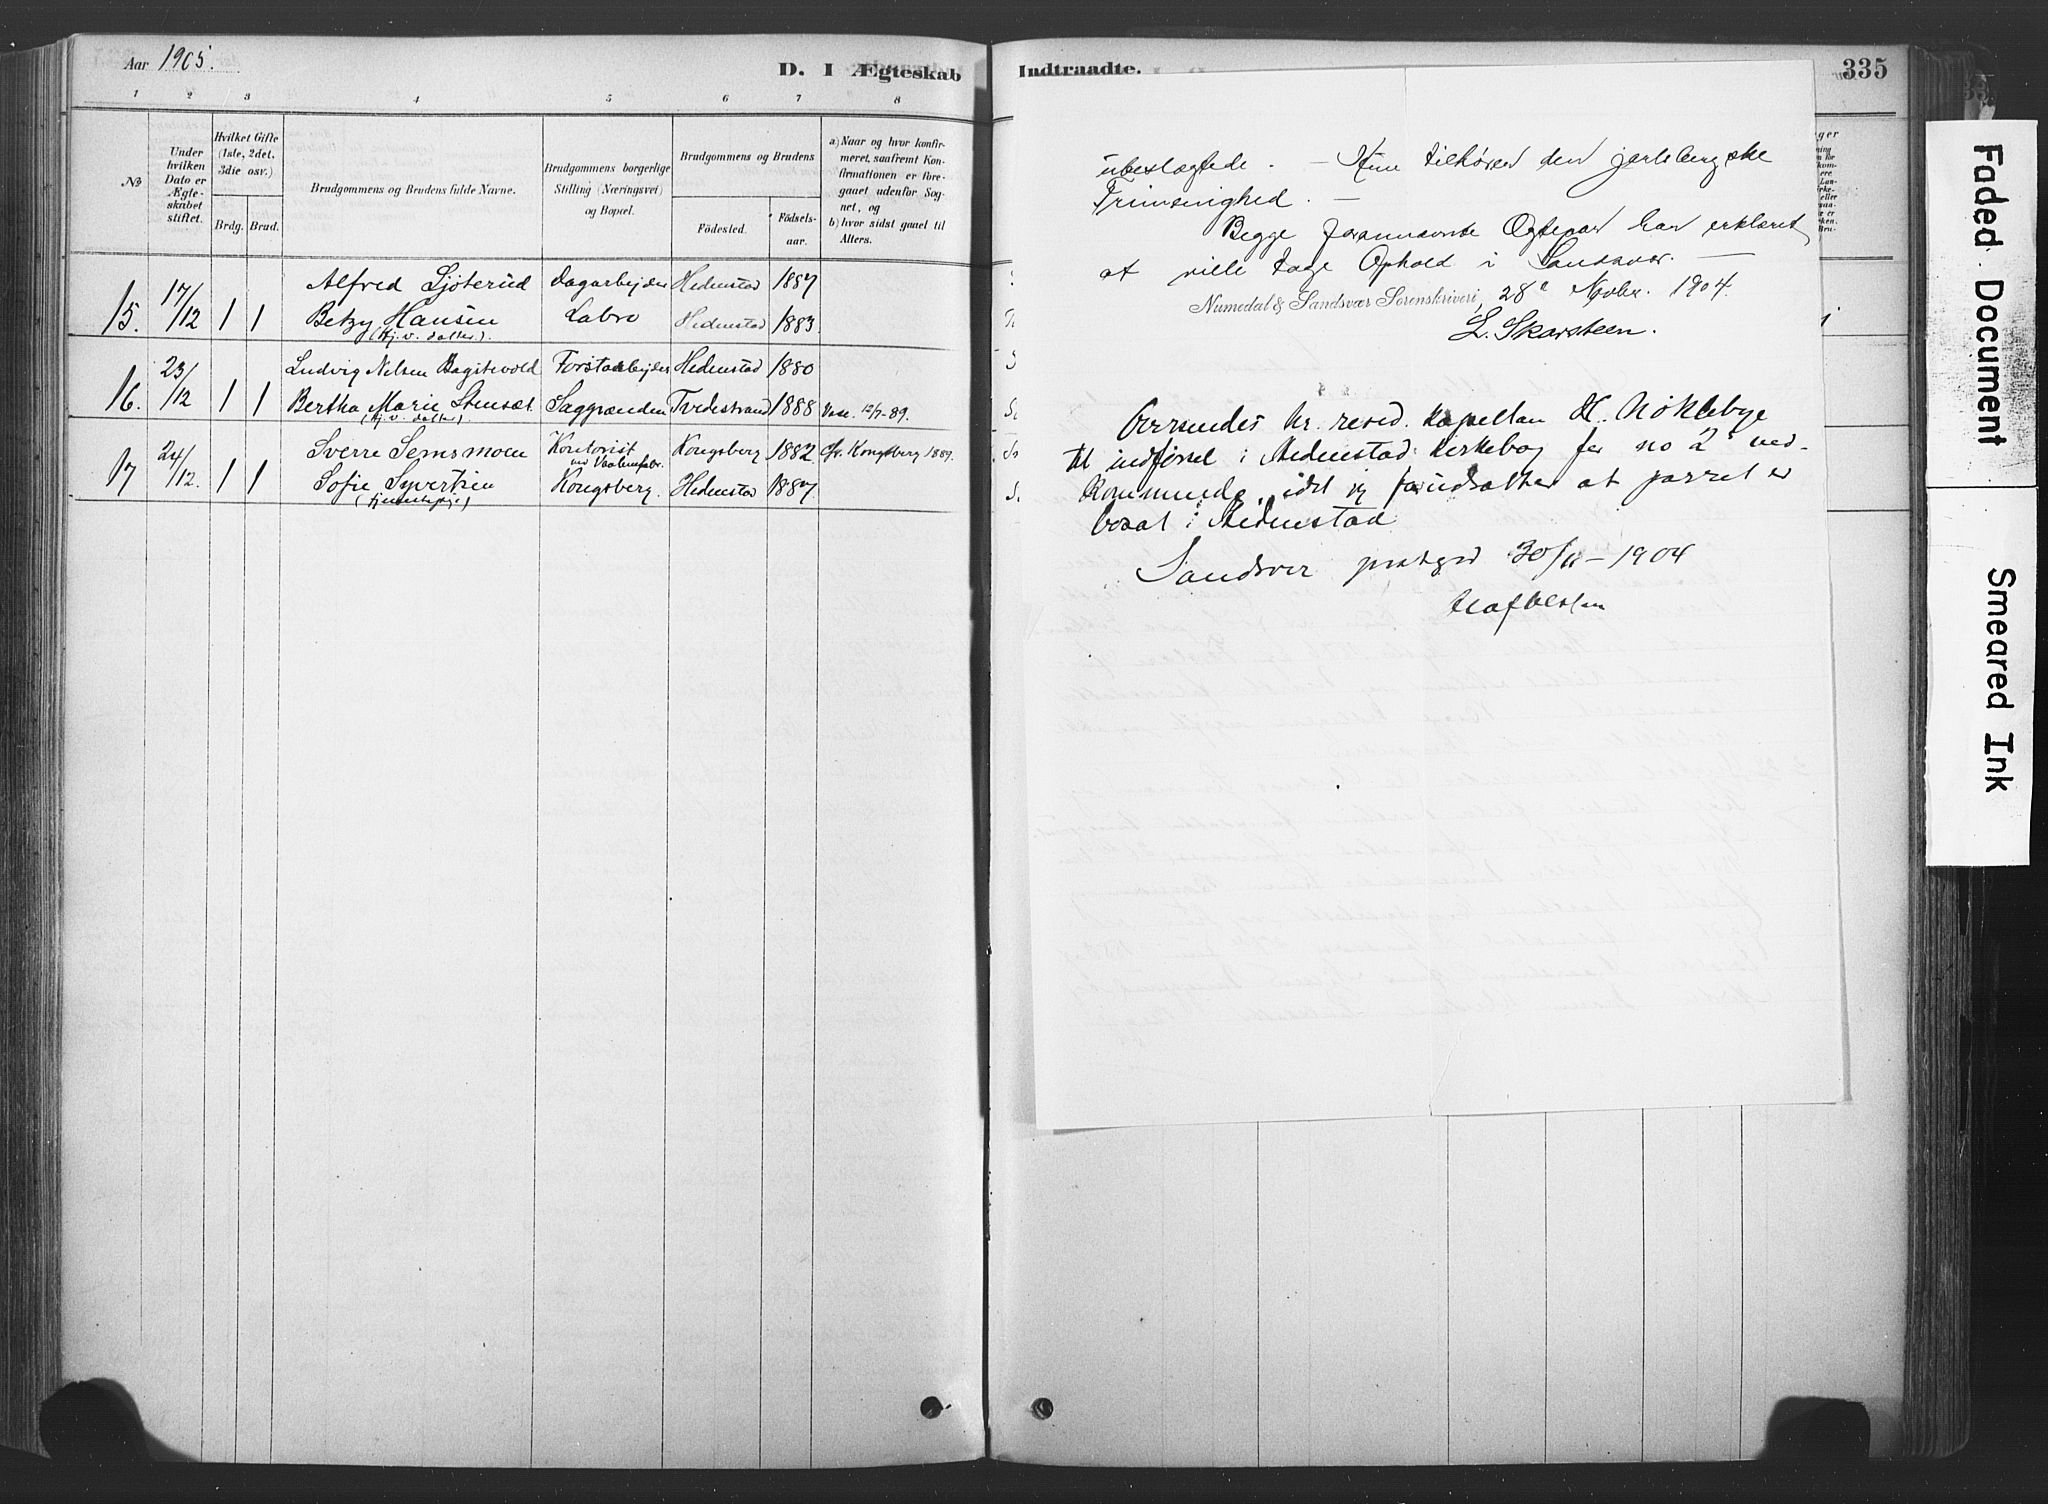 Aar 1905.
D. I Ægteskab
1 2 3 4 5 6 7 8
No
Under hvilken Dato er Ægteskabet stiftet.
Hvilket Gifte (1ste, 2det, 3die osv.)
Brdg. Brud.
Brudgommens og Brudens fulde Navne.
Brudgommens borgerlige Stilling (Næringsvei) og Bopæl.
Brudgommens og Brudens
Fødested. Fødselsaar.
a) Naar og hvor konfirmeret, saafremt Konfirmationen er foregaaet udenfor Sognet, og
b) hvor sidst gaaet til Alters.
15. 17/12 1 1
Alfred Sjøterud Dagarbejder Hedenstad 1887
Betzy Hansen Labro Hedenstad 1883
(Hj. v. datter).
16. 23/12 1 1
Ludvig Nelsen Bagstevold Forstarbejder Hedenstad 1880
Bertha Marie Stensæt Saggrænden Tvedestrand 1888
(Hj. v. datter)
17 24/12. 1 1
Sverre Semsmoen Kontorist Kongsberg 1882
Sofie Syvertsen Kongsberg. Hedenstad 1887.
Indtraadte.
335
ubeslægtede. – Hun tilhører den jarlsbergske
Frimenighed. –
Begge forannævnte Ægtepar har erklæret
at ville tage Ophold i Sandsvær. –
Numedal & Sandsvær Sorenskriveri, 28e Novbr. 1904.
L. Skarsteen.
Oversendes hr. resid. kapellan H. Nøklebye
til indførsel i Hedenstad kirkebog for no 2's ved-
kommende, idet jeg forudsætter at parret er
bosat i Hedenstad
Sandsver prestegd 30/11 – 1904
Faded Document
Smeared Ink